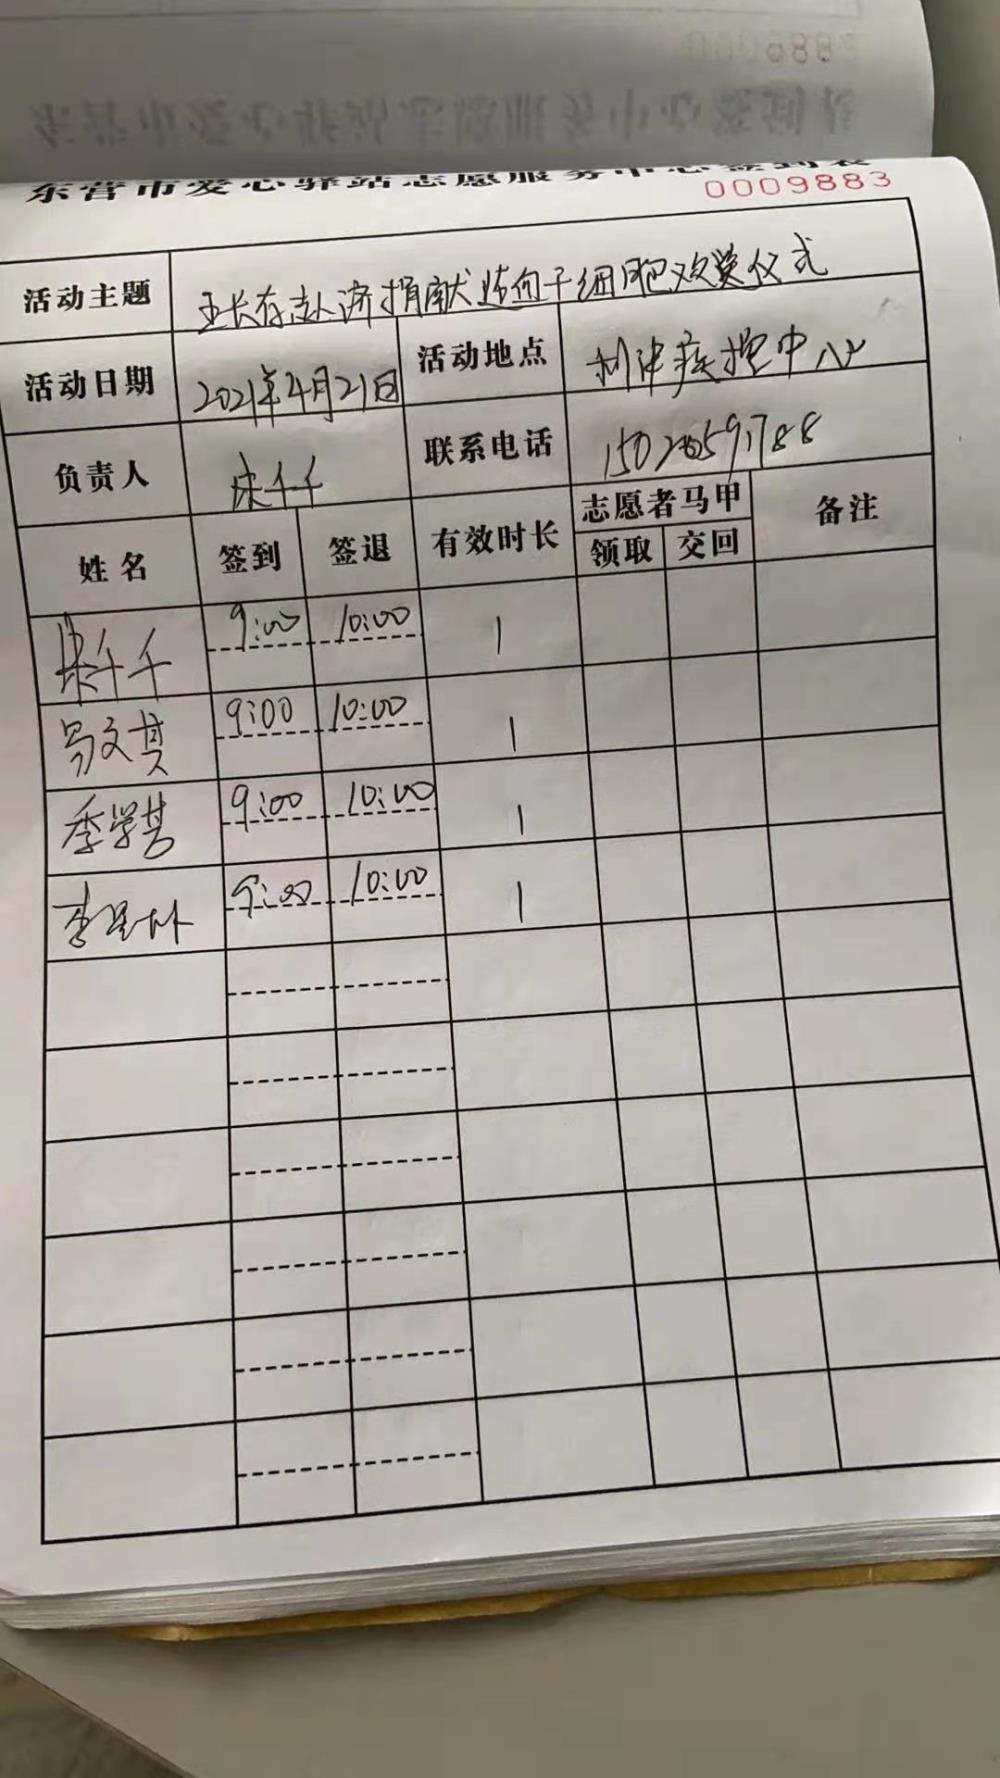 东营市爱心驿站志愿服务中心签到表
0009883
活动主题 王长存赴济捐献造血干细胞欢送仪式
活动日期 2021年4月21日 活动地点 利津疾控中心
负责人 宋千千 联系电话
姓名 签到 签退 有效时长 志愿者马甲 备注
领取 交回
宋千千 9:00 10:00 1
9:00 10:00 1
季学其 9:00 10:00 1
李呈林 9:00 10:00 1